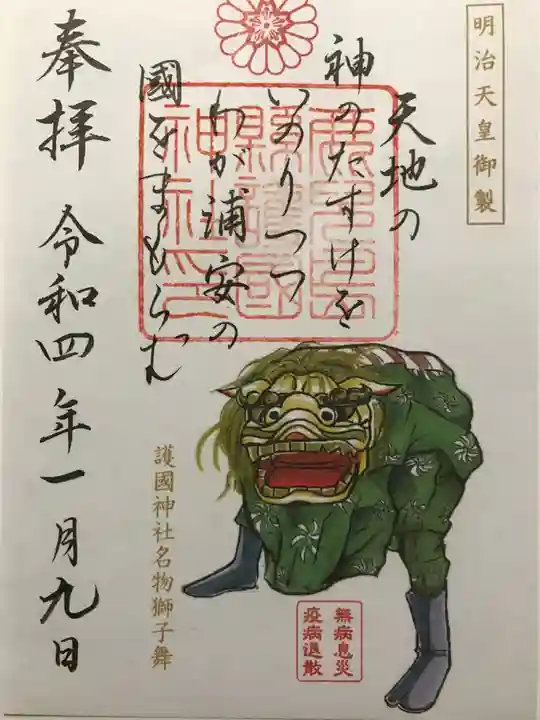 明治天皇御製
天地の
神のたすけを
いのりつつ
わが浦安の
國をまもらむ
奉拝 令和四年一月九日
護國神社名物獅子舞
無病息災
疫病退散